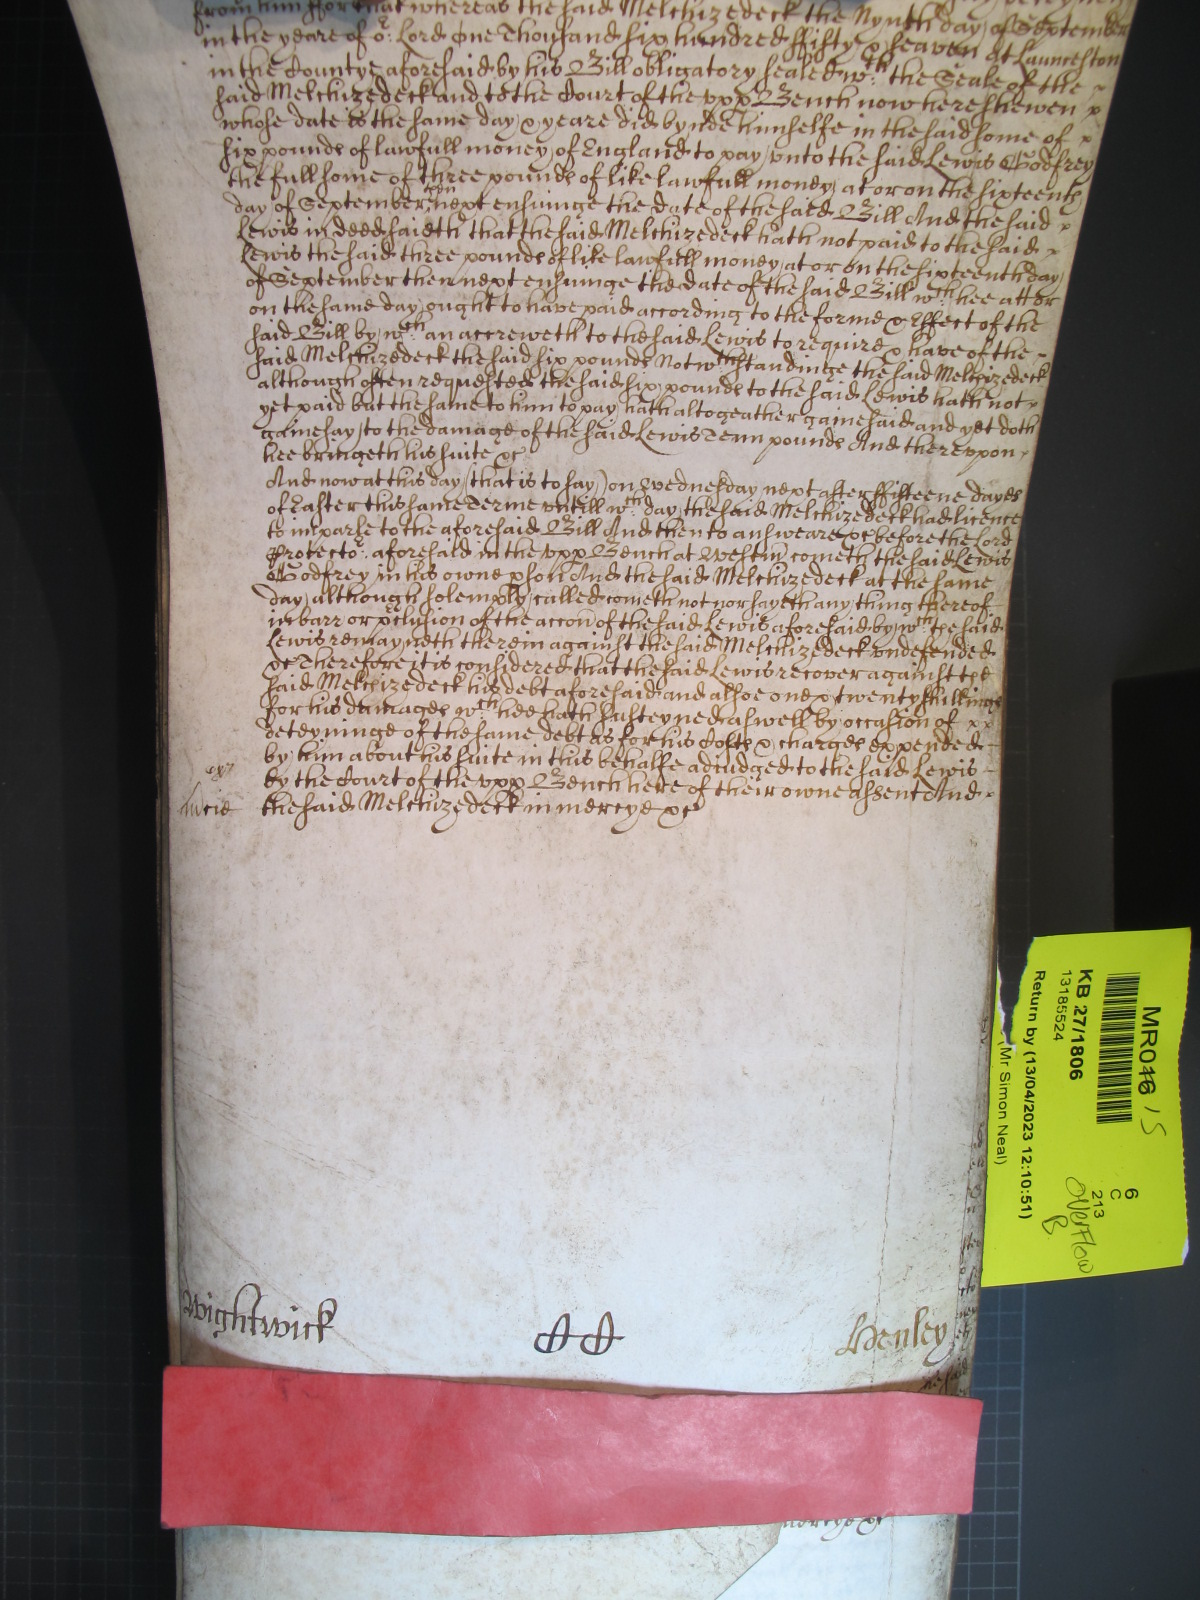 from him for that whereas the said Melchizedeck the Nynth day of September
in the yeare of or: Lord One Thousand six hundred ffifty & seaven At Launceston
in the Countye aforesaid by his Bill obligatory sealed wth: the Seale of the
said Melchizedeck and to the Court of the vpp Bench now here shewen
whose date is the same day & yeare did bynde himselfe in the said some of
six pounds of lawfull money of England to pay vnto the said Lewis Godfrey
the full some of three pounds of like lawfull money at or on the sixteenth
day of September then next ensuinge the date of the said Bill And the said
Lewis in deed saieth that the said Melchizedeck hath not paid to the said
Lewis the said three pounds of like lawfull money at or on the sixteenth day
of September then next ensuinge the date of the said Bill wch: hee att or
on the same day ought to have paid according to the forme & Effect of the
said Bill by wch: an accreweth to the said Lewis to require & have of the
said Melchizedeck the said six pounds Notwthstandinge the said Melchizedeck
although often requested the said six pounds to the said Lewis hath not
yet paid but the same to him to pay hath altogeather gainesaid and yet doth
gainesay to the damage of the said Lewis Tenn pounds And therevpon
hee bringeth his suite &c
And now at this day (that is to say) on Wednesday next after ffifteene dayes
of Easter this same Terme vntill wch: day the said Melchizedeck had licence
to imparle to the aforesaid Bill And then to answeare &c before the Lord
Protector: aforesaid in the vpp Bench at Westm cometh the said Lewis
Godfrey in his owne pson And the said Melchizedeck at the same
day although solemply called cometh not nor sayeth any thing thereof
in barr or pclusion of the accon of the said Lewis aforesaid by wch the said
Lewis remayneth therein against the said Melchizedeck vndefended
&c Therefore it is considered that the said Lewis recover against the
said Melchizedeck his debt aforesaid and alsoe one & twenty shillings
for his damages wch: hee hath susteyned aswell by occasion of
deteyninge of the same debt as for his Costs & charges expended
by him about his suite in this behalfe adiudged to the said Lewis
by the Court of the vpp Bench here of their owne assent And
the said Melchizedeck in mercye &c
mcie
Wightwick
Henley
mercye &c
MR046 15
KB 27/1806
13185524
Return by (13/04/2023 12:10:51)
(Mr Simon Neal)
6
C
213
Overflow
B